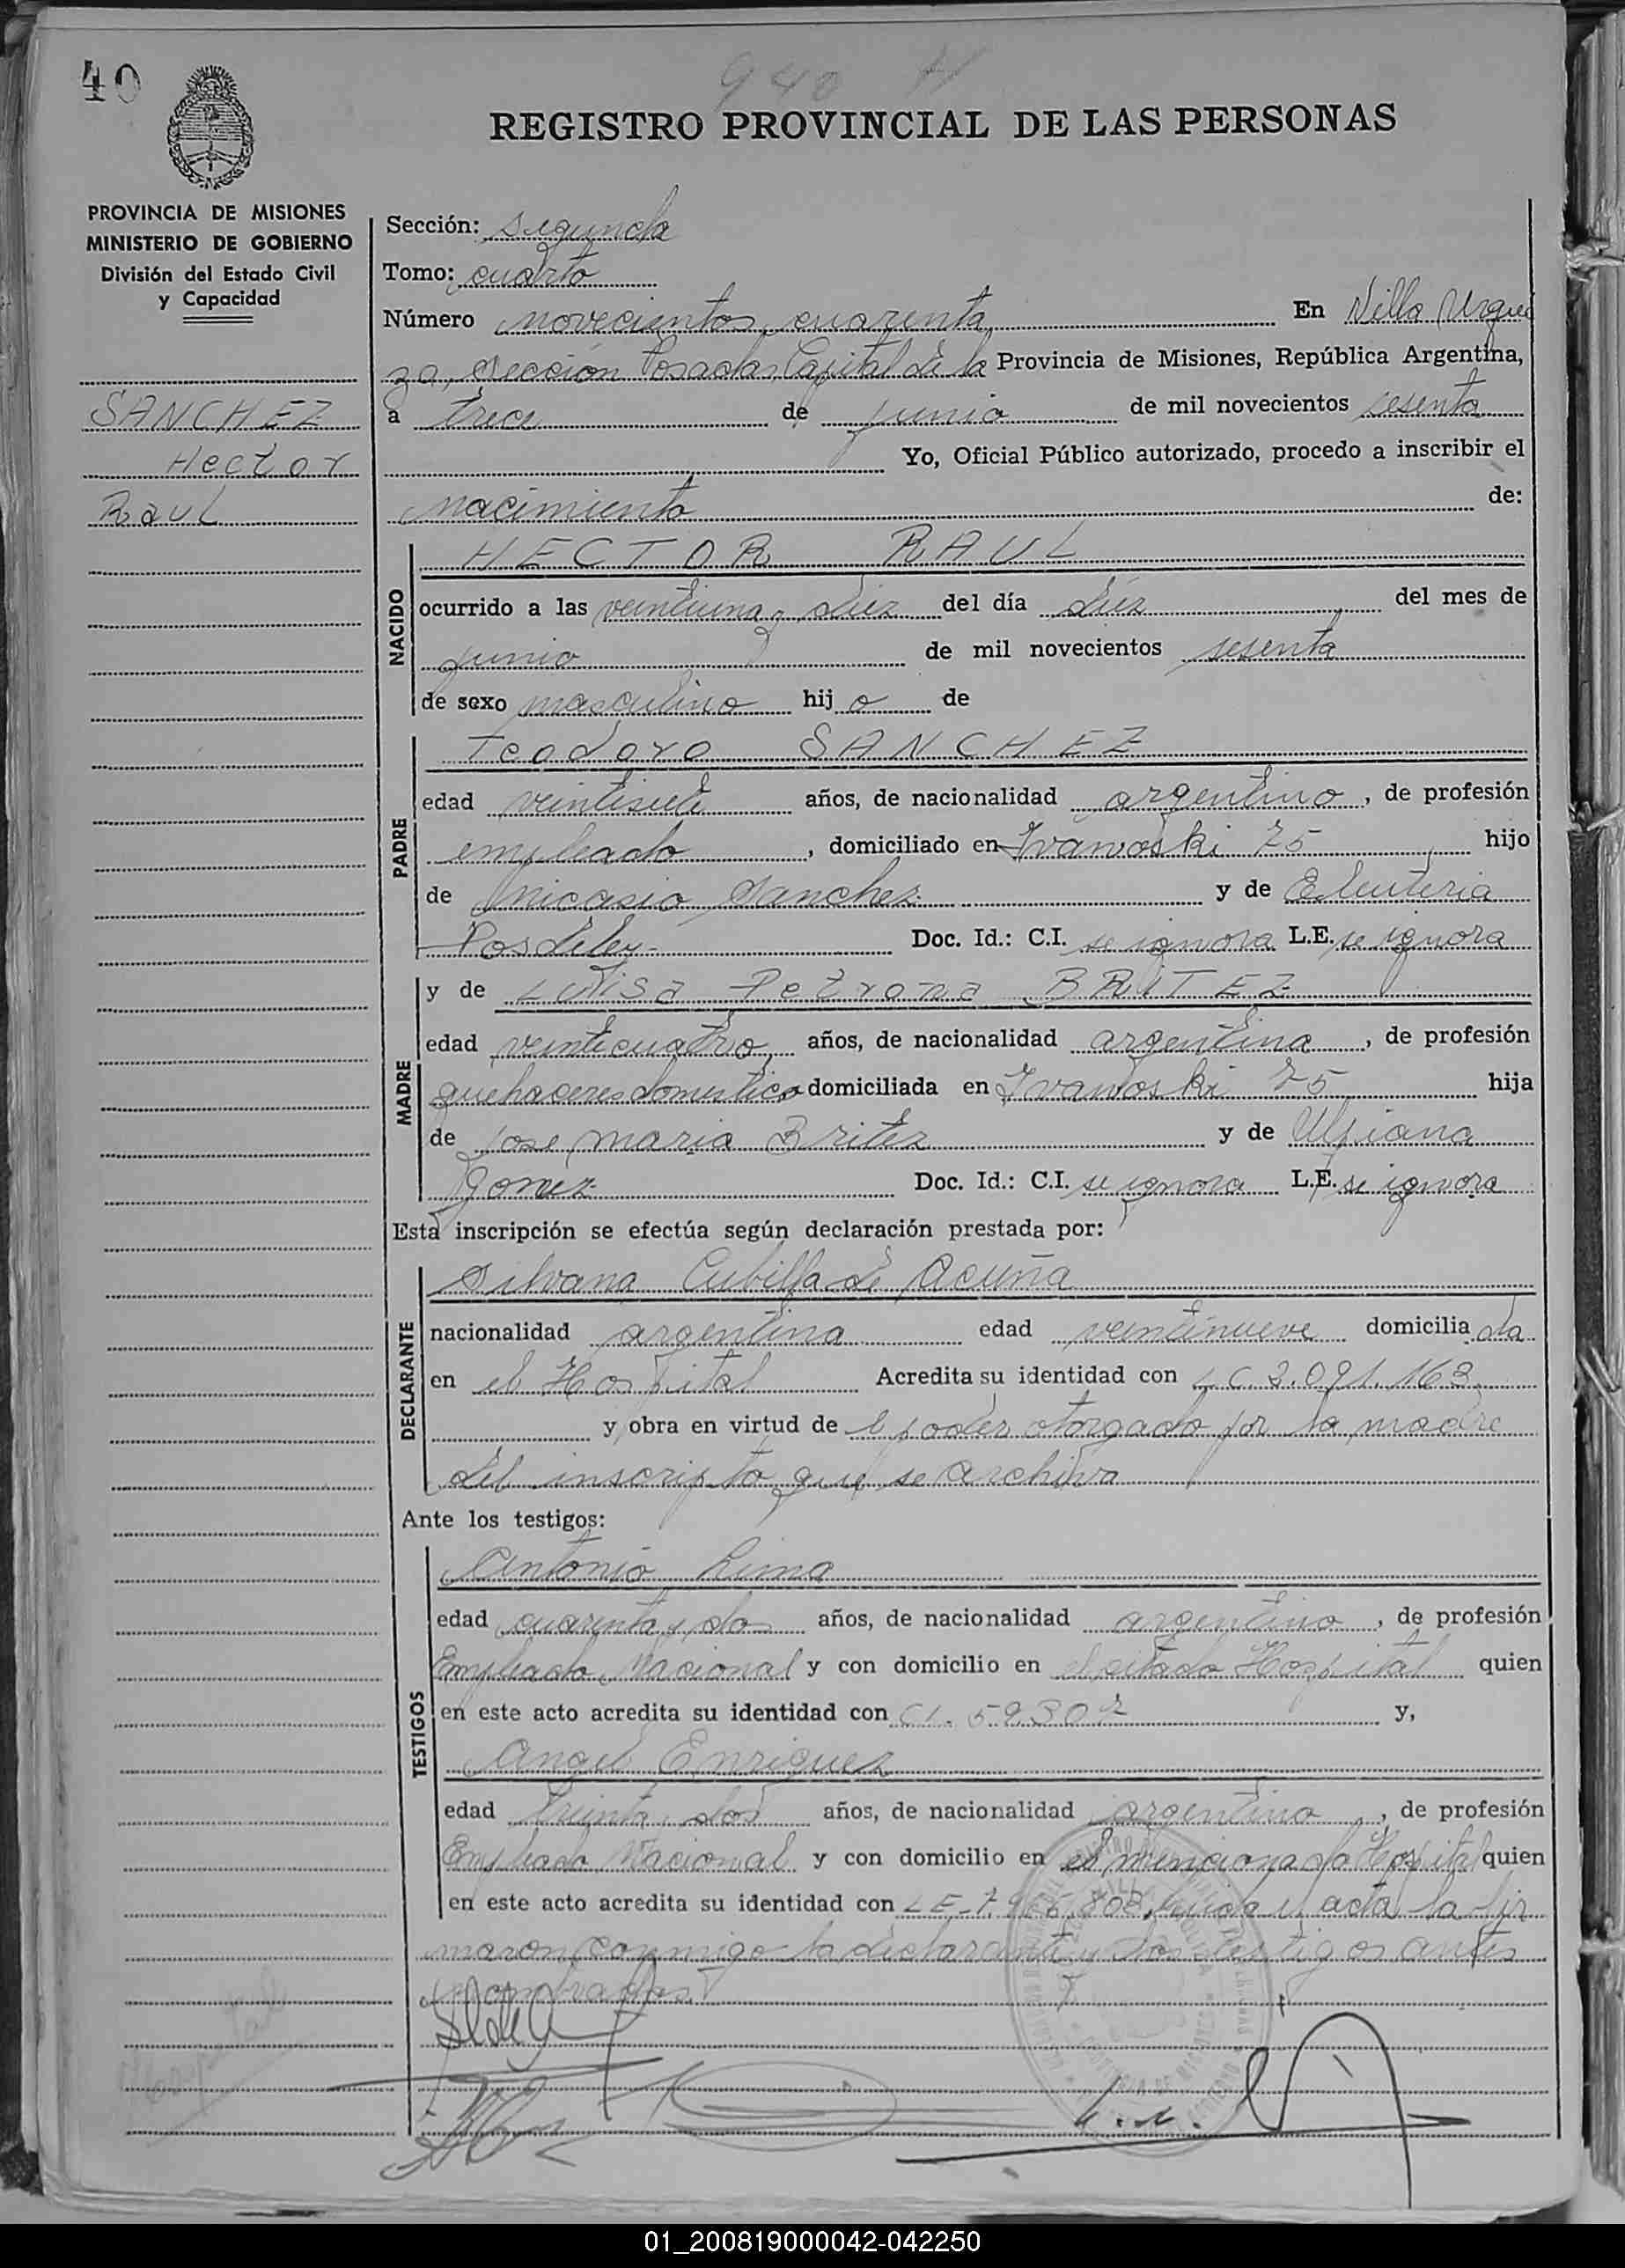 40
940
REGISTRO PROVINCIAL DE LAS PERSONAS
PROVINCIA DE MISIONES
MINISTERIO DE GOBIERNO
División del Estado Civil
y Capacidad
SANCHEZ
Hector
Raul
Sección: segunda
Tomo: cuarto
Número novecientos cuarenta En Villa Urqui
za, sección Posadas, Capital de la Provincia de Misiones, República Argentina,
a trece de junio de mil novecientos sesenta
Yo, Oficial Público autorizado, procedo a inscribir el
nacimiento de:
NACIDO
HECTOR RAUL
ocurrido a las veintiuna y diez del día diez del mes de
junio de mil novecientos sesenta
de sexo masculino hijo de
PADRE
Teodoro SANCHEZ
edad veintisiete años, de nacionalidad argentino, de profesión
empleado, domiciliado en Ivanoski 75 hijo
de Nicasio Sanchez y de Eleuteria
Posdeley Doc. Id.: C.I. se ignora L.E. se ignora
MADRE
y de Luisa Petrona BRITEZ
edad veinticuatro años, de nacionalidad argentina, de profesión
quehaceres domestico domiciliada en Ivanoski 75 hija
de Jose maria Britez y de Ulpiana
Gomez Doc. Id.: C.I. se ignora L.E. se ignora
Esta inscripción se efectúa según declaración prestada por:
DECLARANTE
Silvana Cubilla de Acuña
nacionalidad argentina edad veintinueve domiciliada
en el Hospital Acredita su identidad con LC 3.091.163
y obra en virtud de l poder otorgado por la madre
del inscripto que se archiva
Ante los testigos:
TESTIGOS
Antonio Lima
edad cuarenta y dos años, de nacionalidad argentino, de profesión
Empleado Nacional y con domicilio en el citado Hospital quien
en este acto acredita su identidad con CI. 59.307 y,
Angel Enriquez
edad treinta y dos años, de nacionalidad argentino, de profesión
Empleado Nacional y con domicilio en el mencionado Hospital quien
en este acto acredita su identidad con LE-7. 808, leida el acta la fir
maron conmigo la declarante y los testigos antes
nombrados.
Hospital
01_200819000042-042250